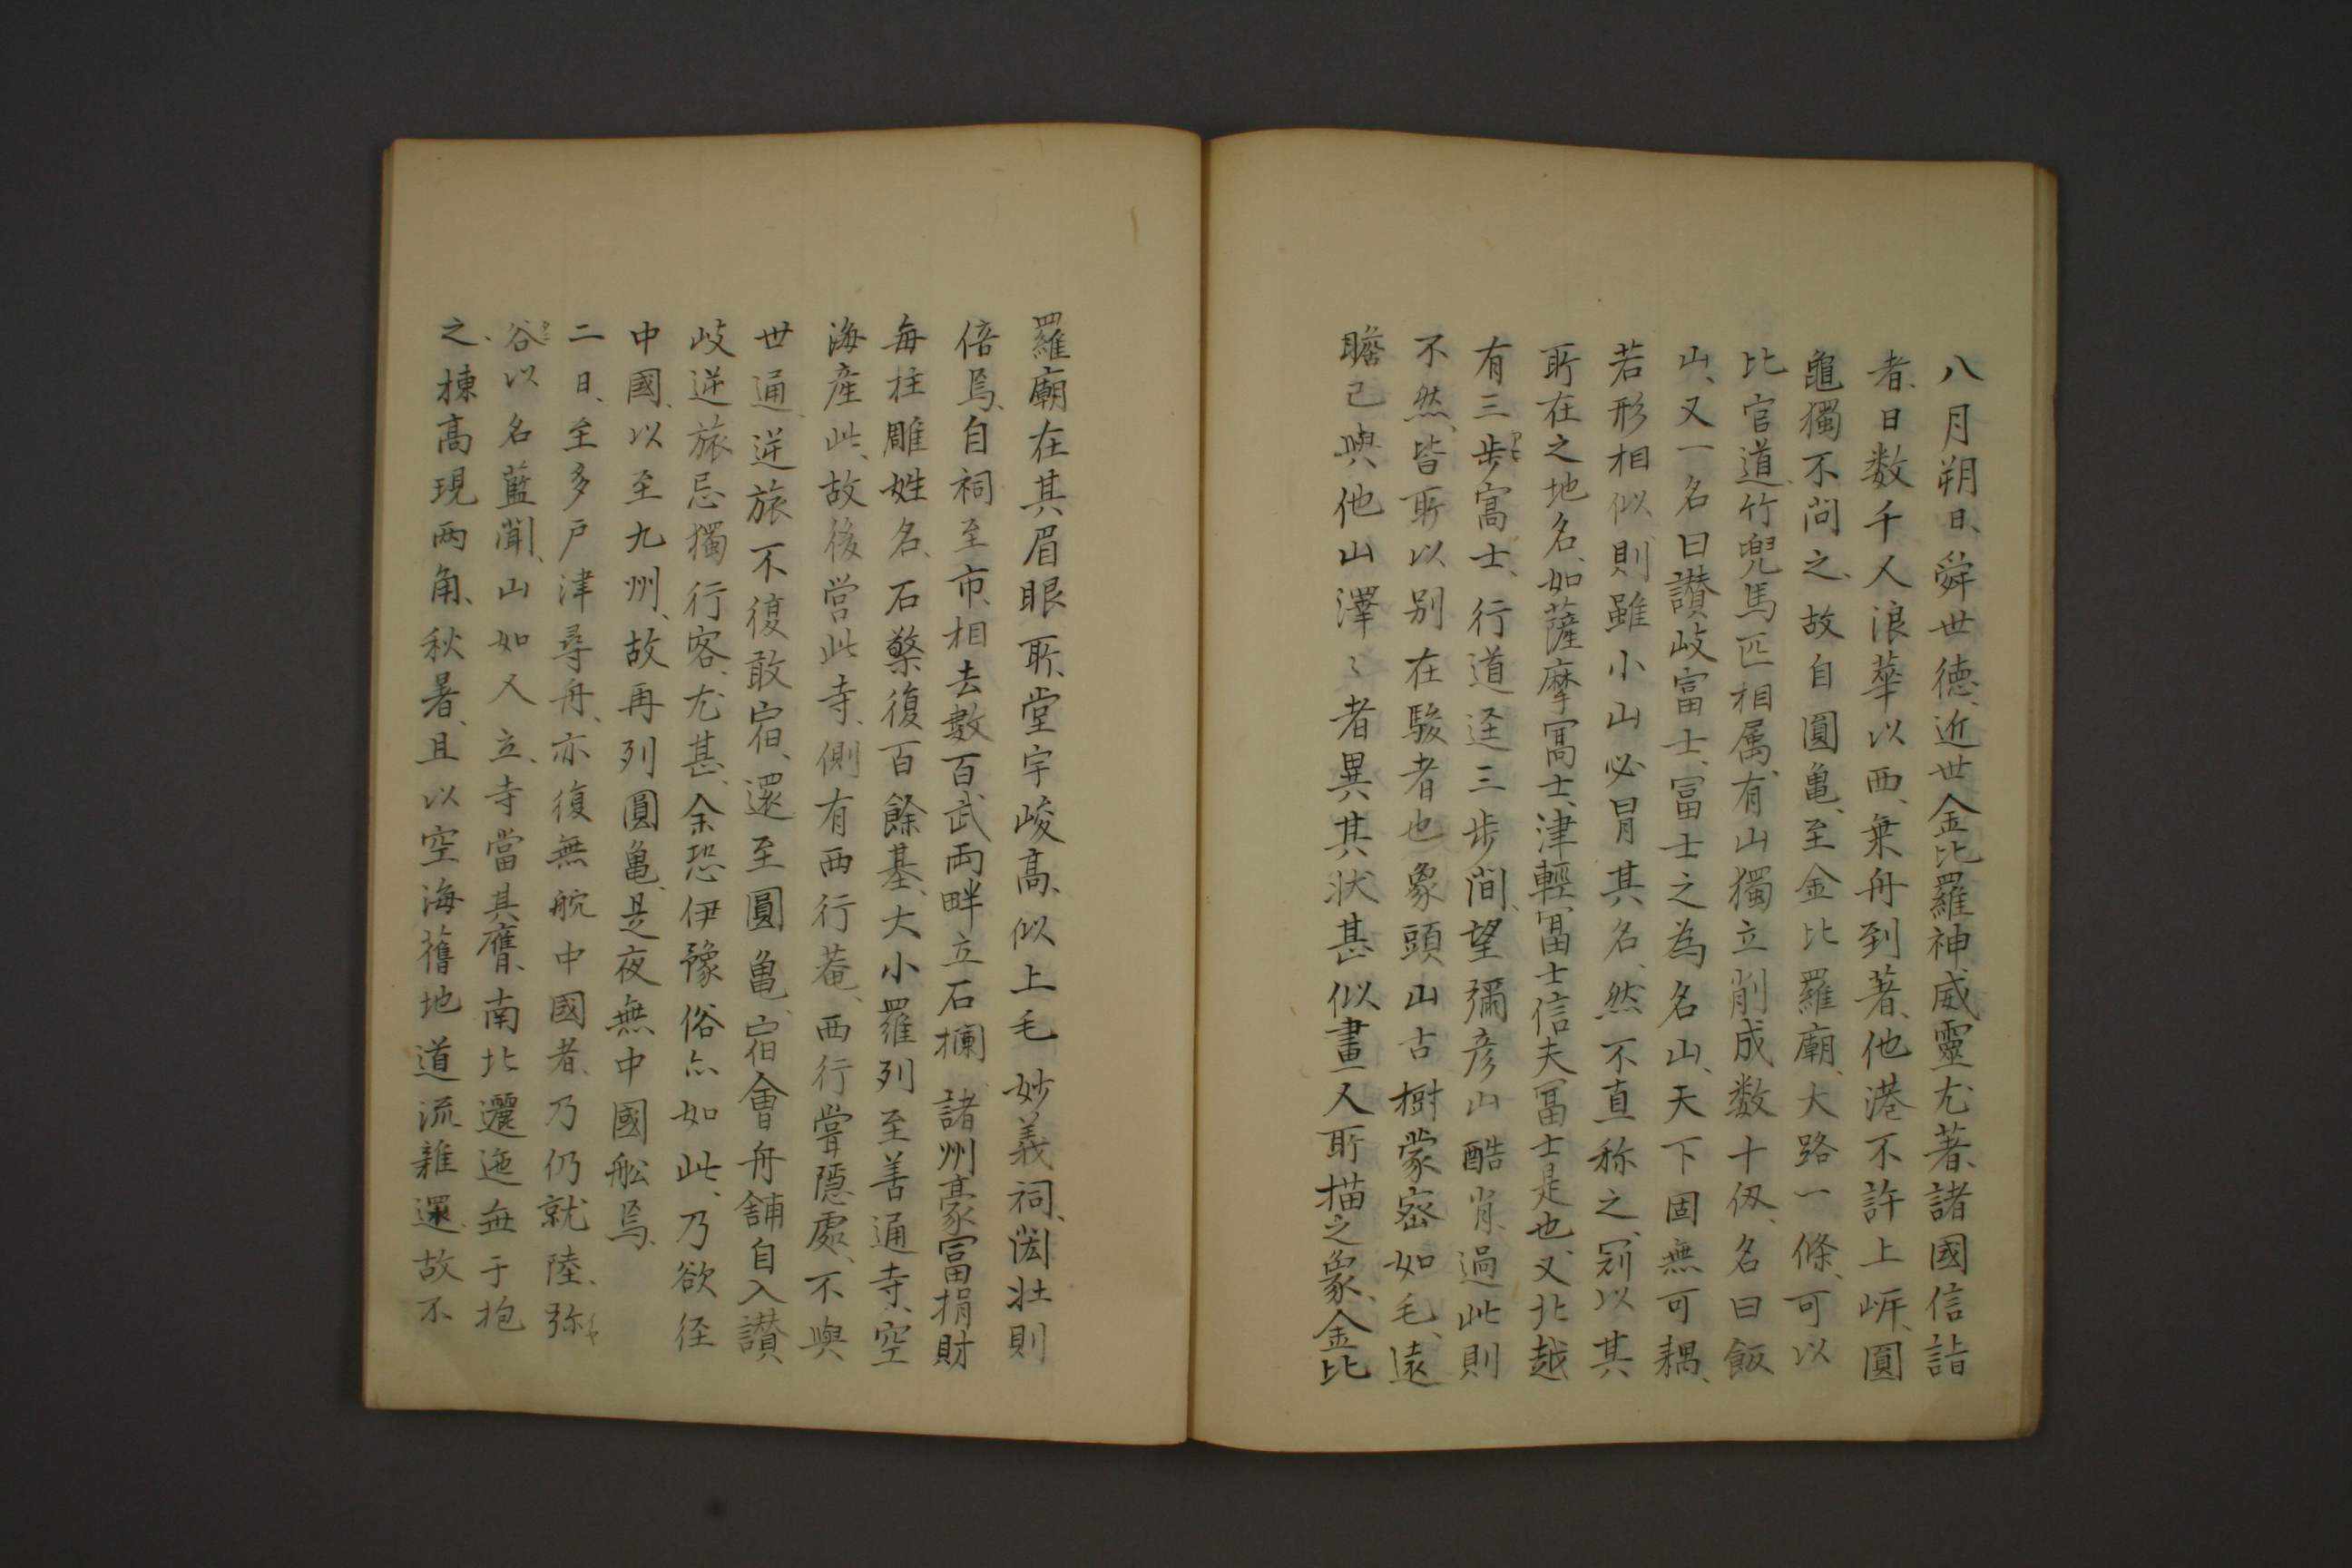 八月朔日、舜世德、近世金比羅神威靈尤著、諸國信詣
者、日数千人浪華以西、乗舟到著、他港不許上岍、圓
龜獨不問之、故自圓亀、至金比羅廟、大路一條、可以
比官道、竹兜馬匹相属、有山獨立削成数十仭、名曰飯
山、又一名曰讃岐富士、冨士之為名山、天下固無可耦、
若形相似、則雖小山必冒其名、然不直称之、冠以其
所在之地名、如薩摩冨士、津輕冨士信夫冨士是也、又北越
有三歩冨士、行道逕三歩間、望彌彦山酷肖、過此則
不然、皆所以别在駿者也象頭山古樹蒙密如毛、遠
瞻已與他山澤〻者異其状甚似畫人所描之象、金比
羅廟在其眉眼所、堂宇峻髙、似上毛妙義祠、閎壮則
倍焉、自祠至市、相去數百武両畔立石欄諸州豪富捐財
每柱雕姓名、石檠復百餘基、大小羅列至善通寺、空
海産此、故後営此寺、側有西行菴、西行嘗隱處、不與
世通、逆旅不復敢宿、還至圓亀、宿會舟舗自入讃
岐逆旅忌獨行客、尤甚、余恐伊豫俗亦如此、乃欲径
中國、以至九州、故再列圓亀、是夜無中國舩焉、
二日、至多戸津尋舟、亦復無舩中國者、乃仍就陸、弥
谷以名藍聞、山如人立、寺當其膺、南北邐迤無于抱
之、棟髙現两角、秋暑、且以空海舊地道流雜還、故不